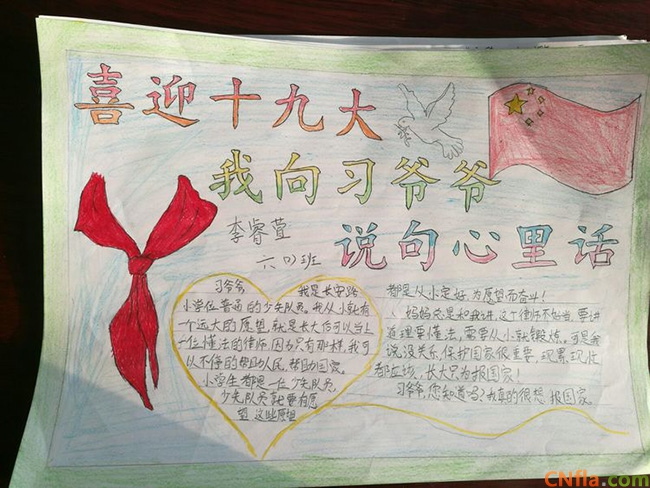 喜迎十九大
我向习爷爷
说句心里话
李睿萱
六(2)班
习爷爷 我是长安路
小学位普通的少先队员。我从小就有
一个远大的愿望,就是长大后可以当上
一位懂法的律师,因为只有那样,我可
以不停的帮助人民,帮助国家。
小学生都是一位少先队员,
少先队员就要有愿
望,这些愿望
都是从小定好,为愿望而奋斗!
妈妈总是和我讲,这个律师不好当,要讲
道理要懂法,需要从小就锻炼。可是我
说,没关系,保护国家很重要,现累现忙
都应该,长大只为报国家!
习爷爷,您知道吗?我真的很想报国家。
CNfla.com